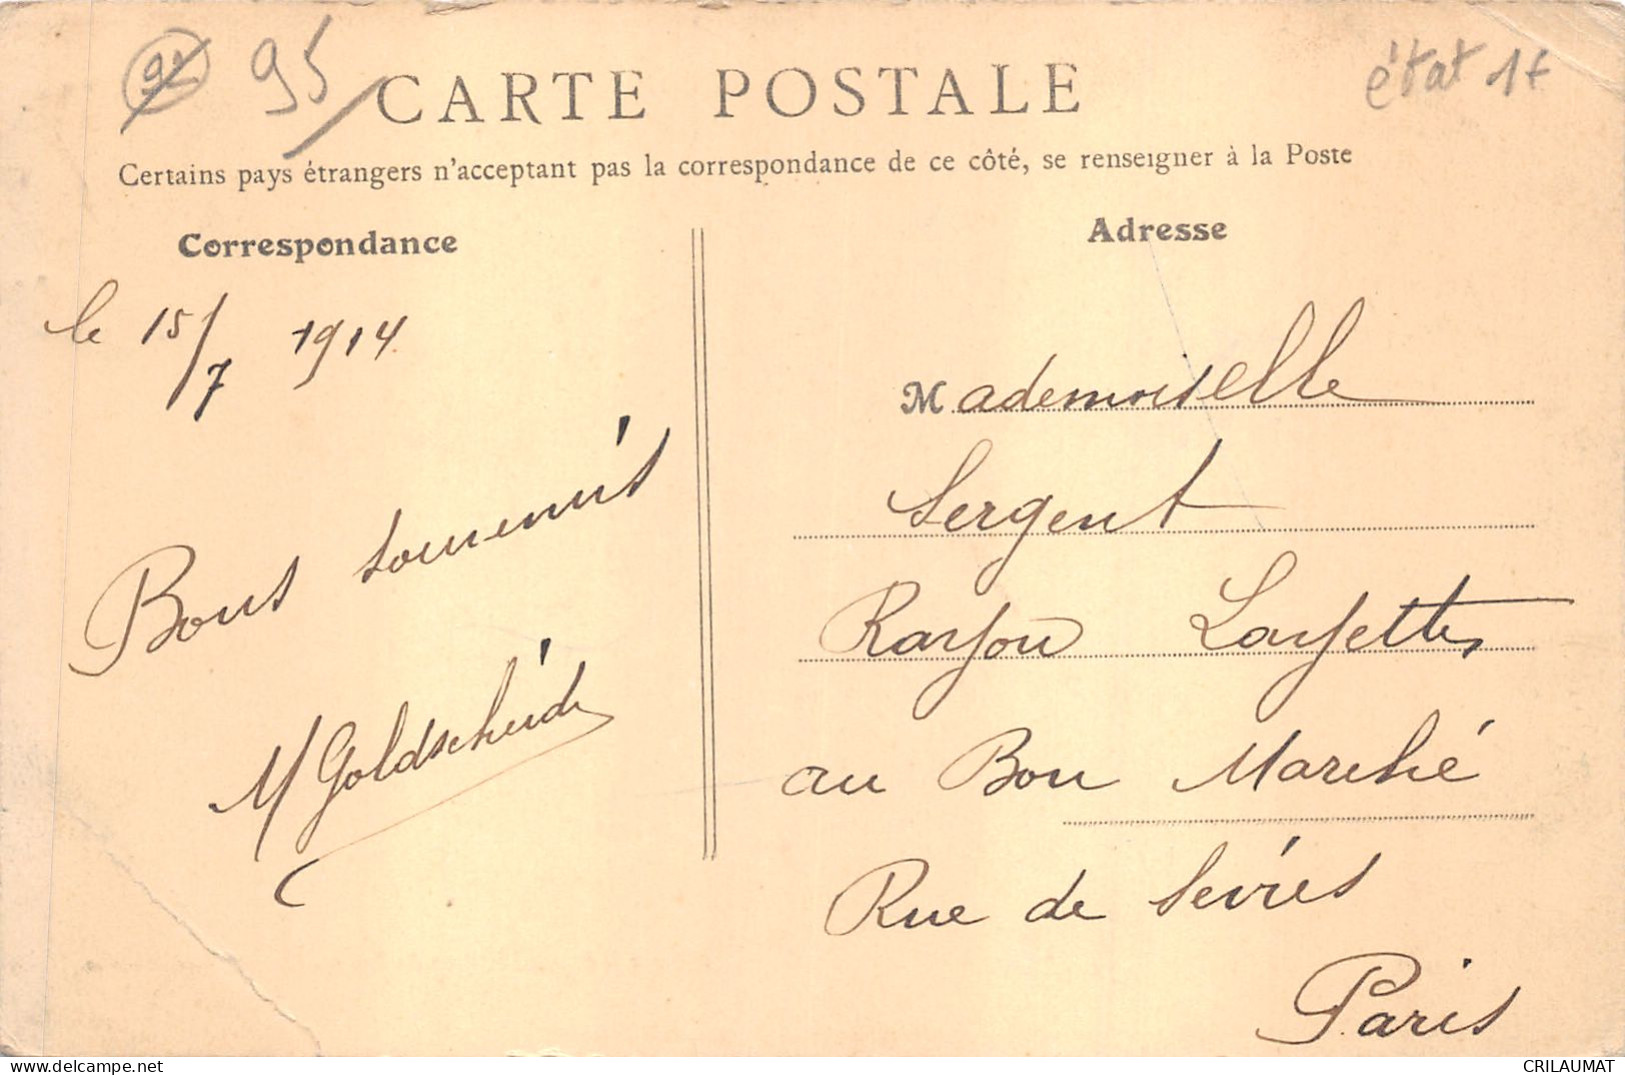 92 95 état 1f
CARTE POSTALE
Certains pays étrangers n'acceptant pas la correspondance de ce côté, se renseigner à la Poste
Correspondance
le 15/7 1914
Bons souvenirs
M Goldscheider
Adresse
Mademoiselle
Sergent
Rayon Layettes
au Bon Marché
Rue de Sèvres
Paris
CRILAUMAT